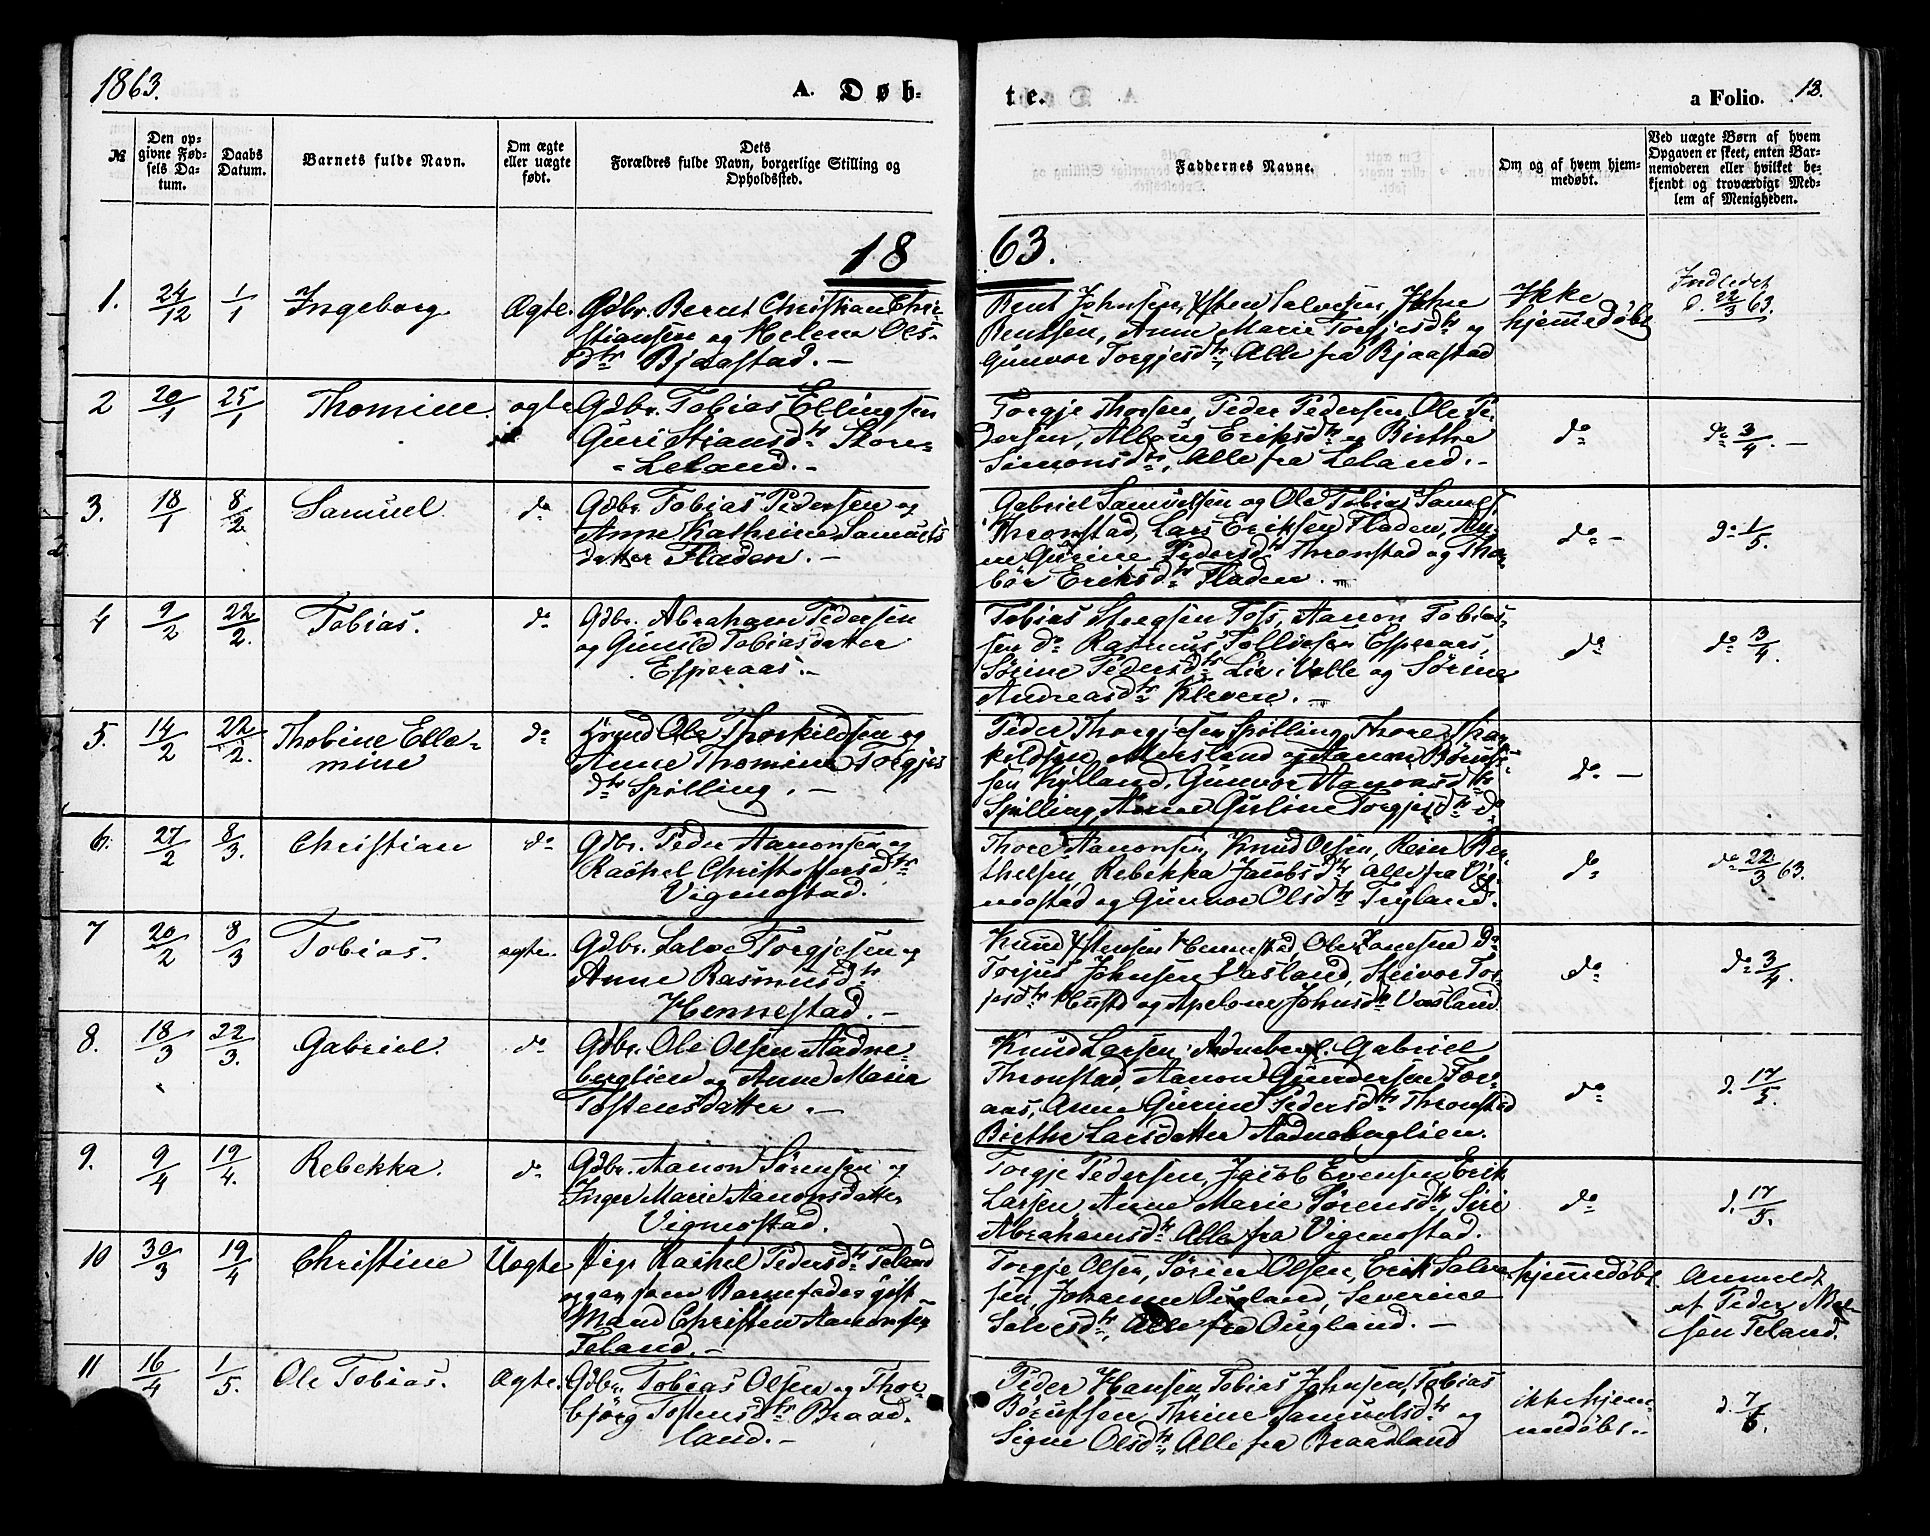 1863.
A. Døb-
te.
a Folio. 13.
№
Den op-
givne Fød-
sels Da-
tum.
Daabs
Datum.
Barnets fulde Navn.
Om ægte
eller uægte
født.
Dets
Forældres fulde Navn, borgerlige Stilling og
Opholdssted.
Faddernes Navne.
Om og af hvem hjem-
medøbt.
Ved uægte Børn af hvem
Opgaven er skeet, enten Bar-
nemoderen eller hvilket be-
kjendt og troværdigt Med-
lem af Menigheden.
18 63.
1. 24/12 1/1 Ingeborg Ægte.
Gdbr. Bernt Christian Chri-
stiansen og Helene Ols-
dtr Bjaastad. —
Bent Johnsen, Ysten Salvesen, John
Bentsen, Anne Marie Torgjesdtr og
Gunvor Torgjesdtr, Alle fra Bjaastad
Ikke
hjemmedøbt
Indledet
d. 22/3 63.
2 20/1 25/1 Thomine. ægte
Gdbr. Tobias Ellingsen
Guri Stiansdtr Store-
Leland. —
Torgje Thorsen, Peder Pedersen, Ole Pe-
dersen, Alborg Eriksdtr og Birthe
Simonsdtr, Alle fra Leland. —
do
do 3/4. —
3. 18/1 8/2 Samuel do
Gdbr. Tobias Pedersen og
Anne Kathrine Samuels
datter Fladen. —
Gabriel Samuelsen og Ole Tobias Samels.
Thronstad, Lars Eriksen Fladen, An-
ne Gurine Pedersdtr Thronstad og Thor-
bør Eriksdtr Fladen. —
do —
do 1/5.
4 9/2 22/2. Tobias. do
Gdbr. Abraham Pedersen
og Gunild Tobiasdatter
Esperaas. —
Tobias Stiegsen Tofs, Aanon Tobias-
sen do Rasmus Tollissen Esperaas,
Sørine Pedersdtr Lie i Valle og Sørine
Andreasdtr Kleven. —
do
do 3/4.
5. 14/2 22/2. Thobine Elle-
mine do
Ole Thorkildsen og
Anne Thomine Torgjes
dtr Spilling. —
Peder Thorgjesen Spilling, Thore Thor-
kildsen Mersland og Aanon Børuf-
sen Kylland, Gunvor Aanonsdtr
Spilling, Anne Gurline Torgjesdtr do
do. —
6. 27/2 8/3. Christian do
Gdbr. Peder Aanonsen og
Rachel Christoffersdtr
Vigmostad.
Thore Aanonsen, Knud Olsen, Reier Ber-
thelsen, Rebekka Jacobsdtr Alle fra Vig-
mostad og Gunvor Olsdtr Tryland.
do
do 22/3 63.
7 20/2 8/3 Tobias. ægte.
Gdbr. Salve Torgjesen og
Anne Rasmusdtr
Hennestad. —
Knud Ystensen Hennestad, Ole Hansen do
Torjus Johnsen Vasland, Seivor Tor-
jesdtr og Apelone Johnsdtr Vasland.
do
do 3/4.
8. 18/3 22/3. Gabriel. do
Gdbr. Ole Olsen Aadne-
berglien og Anne Maria
Tostensdatter. —
Knud Larsen Adneberg. Gabriel
Thronstad, Aanon Gundersen Foer-
aas, Anne Gurine Pedersdtr Thronstad
Birthe Larsdatter Aadneberglien.
do
d. 17/5.
9. 9/4 19/4. Rebekka. do
Gdbr. Aanon Sørensen og
Inger Marie Aanonsdatter
Vigmostad.
Torgje Pedersen, Jacob Evensen, Erik
Larsen, Anne Marie Sørensdtr, Siri
Abrahamsdtr Alle fra Vigmostad.
do
d. 17/5.
10 30/3 19/4 Christine Uægte
Pige Rachel Pedersdtr Teland
opgav som Barnefader gift
Mand Christen Aanonsen
Teland. —
Torgje Olsen, Søren Olsen, Erik Salve-
sen, Johanne Ougland, Severine
Salvesdtr, Alle fra Ougland. —
hjemmedøbt
Anmeldt
af Peder
sen Teland.
11 16/4 1/5. Ole Tobias. Ægte.
Gdbr. Tobias Olsen og Thor-
bjørg Tostensdtr Braad-
land. —
Peder Hansen, Tobias Johnsen, Tobias
Børufsen, Thrine Samuelsdtr og
Signe Olsdtr, Alle fra Braadland
ikke hjem-
medøbt.
d. 7/6.